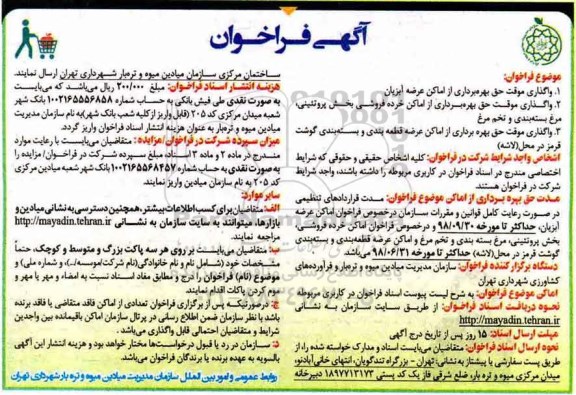 آگهی فراخوان
موضوع فراخوان:
۱. واگذاری موقت حق بهره‌برداری از اماکن عرضه آبزیان
۲. واگذاری موقت حق بهره‌برداری از اماکن خرده فروشی بخش پروتئینی،
مرغ بسته‌بندی و تخم مرغ
۳. واگذاری موقت حق بهره برداری از اماکن عرضه قطعه بندی و بسته‌بندی گوشت
قرمز در محل(لاشه)
اشخاص واجد شرایط شرکت در فراخوان: کلیه اشخاص حقیقی و حقوقی که شرایط
اختصاصی مندرج در اسناد فراخوان در کاربری مربوطه را داشته باشند، واجد شرایط
شرکت در فراخوان هستند.
مدت حق بهره برداری از اماکن موضوع فراخوان: مدت قراردادهای تنظیمی
در صورت رعایت کامل قوانین و مقررات سازمان درخصوص فراخوان اماکن عرضه
آبزیان، حداکثر تا مورخه ۹۸/۰۹/۳۰ و درخصوص فراخوان اماکن خرده فروشی،
بخش پروتئینی، مرغ بسته بندی و تخم مرغ و اماکن عرضه قطعه‌بندی و بسته‌بندی
گوشت قرمز در محل(لاشه) حداکثر تا مورخه ۹۸/۰۶/۳۱ می‌باشد
دستگاه برگزار کننده فراخوان: سازمان مدیریت میادین میوه و تره‌بار و فرآورده‌های
کشاورزی شهرداری تهران
اماکن موضوع فراخوان: به شرح لیست پیوست اسناد فراخوان در کاربری مربوطه
نحوه دریافت اسناد فراخوان: از طریق سایت سازمان به نشانی
http://mayadin.tehran.ir
مهلت ارسال اسناد: ۱۵ روز پس از تاریخ درج آگهی
نحوه ارسال اسناد فراخوان: متقاضیان می‌بایست اسناد و مدارک خواسته شده را، از
طریق پست سفارشی یا پیشتاز به نشانی: تهران - بزرگراه تندگویان، انتهای خانی آبادنو،
میدان مرکزی میوه و تره بار، ضلع شرقی فاز یک کد پستی ۱۸۹۷۷۱۳۱۷۳ دبیرخانه
ساختمان مرکزی سازمان میادین میوه و تره‌بار شهرداری تهران ارسال نمایند.
هزینه انتشار اسناد فراخوان: مبلغ ۲۰۰/۰۰۰ ریال می‌باشد که می‌بایست
به صورت نقدی طی فیش بانکی به حساب شماره ۱۰۰۲۱۶۵۵۵۶۸۵۸ بانک شهر
شعبه میدان مرکزی کد ۲۰۵ (قابل واریز از کلیه شعب بانک شهر) به نام سازمان مدیریت
میادین میوه و تره‌بار به عنوان هزینه انتشار اسناد فراخوان واریز گردد.
میزان سپرده شرکت در فراخوان/مزایده: متقاضیان می‌بایست با رعایت موارد
مندرج در ماده ۲ و ماده ۳ اسناد، مبلغ سپرده شرکت در فراخوان/ مزایده را
به صورت نقدی به حساب شماره ۱۰۰۲۱۶۵۵۶۸۴۵۷ بانک شهر شعبه میدان مرکزی
کد ۲۰۵ به نام سازمان میادین واریز نمایند.
سایر موارد:
الف-متقاضیان برای کسب اطلاعات بیشتر، همچنین دسترسی به نشانی میادین و
بازارها، میتوانند به سایت سازمان به نشانی http://mayadin.tehran.ir
مراجعه نمایند.
ب- متقاضیان می‌بایست بر روی هر سه پاکت بزرگ و متوسط و کوچک، حتماً
مشخصات خود (شامل نام و نام خانوادگی(نام شرکت/موسسه/...)، و شماره ملی) و
موضوع (نام) فراخوان را درج و مطابق مفاد اسناد نسبت به امضاء و مهر یا مهر و
موم کردن پاکات اقدام نمایند.
ج- درصورتیکه پس از برگزاری فراخوان تعدادی از اماکن فاقد متقاضی یا فاقد برنده
باشد با نظر سازمان ضمن اطلاع رسانی در پرتال سازمان اماکن باقیمانده بین واجدین
شرایط و متقاضیان احتمالی قابل واگذاری می باشد.
د- سازمان در رد یا قبول درخواست‌ها مختار خواهد بود و هزینه انتشار این آگهی
بالسویه به عهده برنده یا برندگان فراخوان می‌باشد.
روابط عمومی و امور بین الملل سازمان مدیریت میادین میوه و تره بار شهرداری تهران